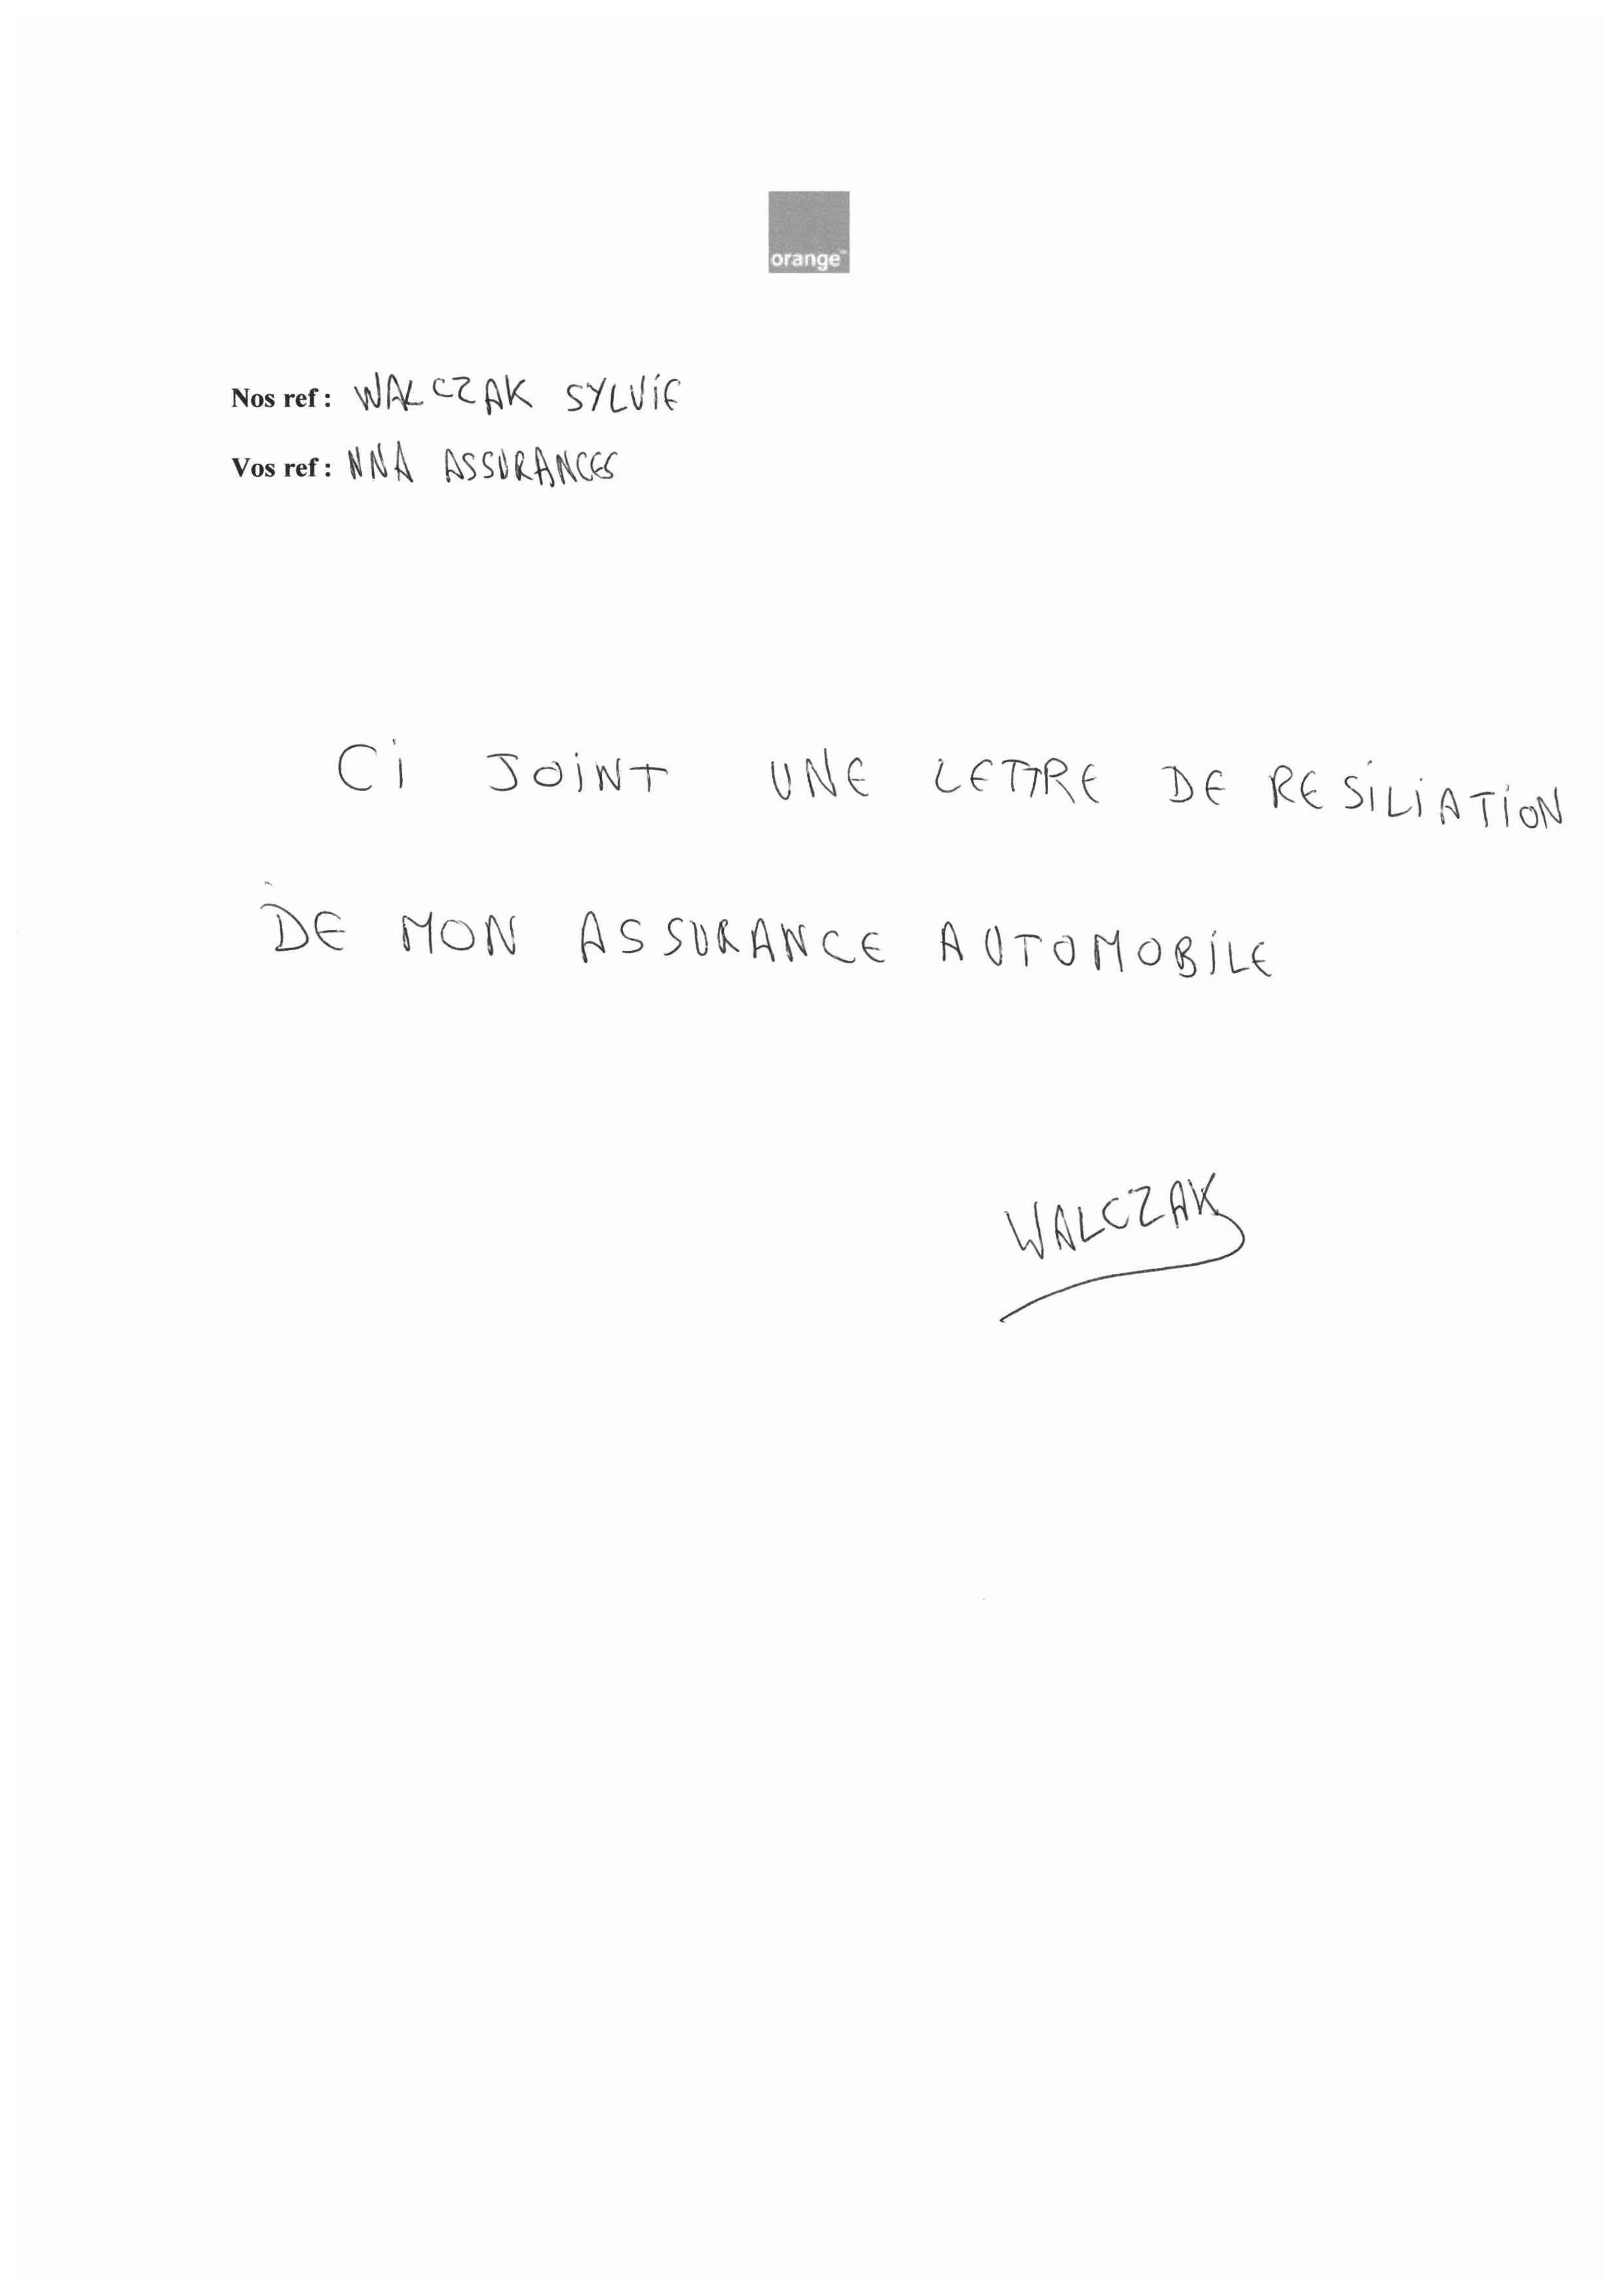 orange™
Nos ref : WALCZAK SYLVIE
Vos ref : NNA ASSURANCES
Ci JOINT UNE LETTRE DE RESILIATION
DE MON ASSURANCE AUTOMOBILE
WALCZAK